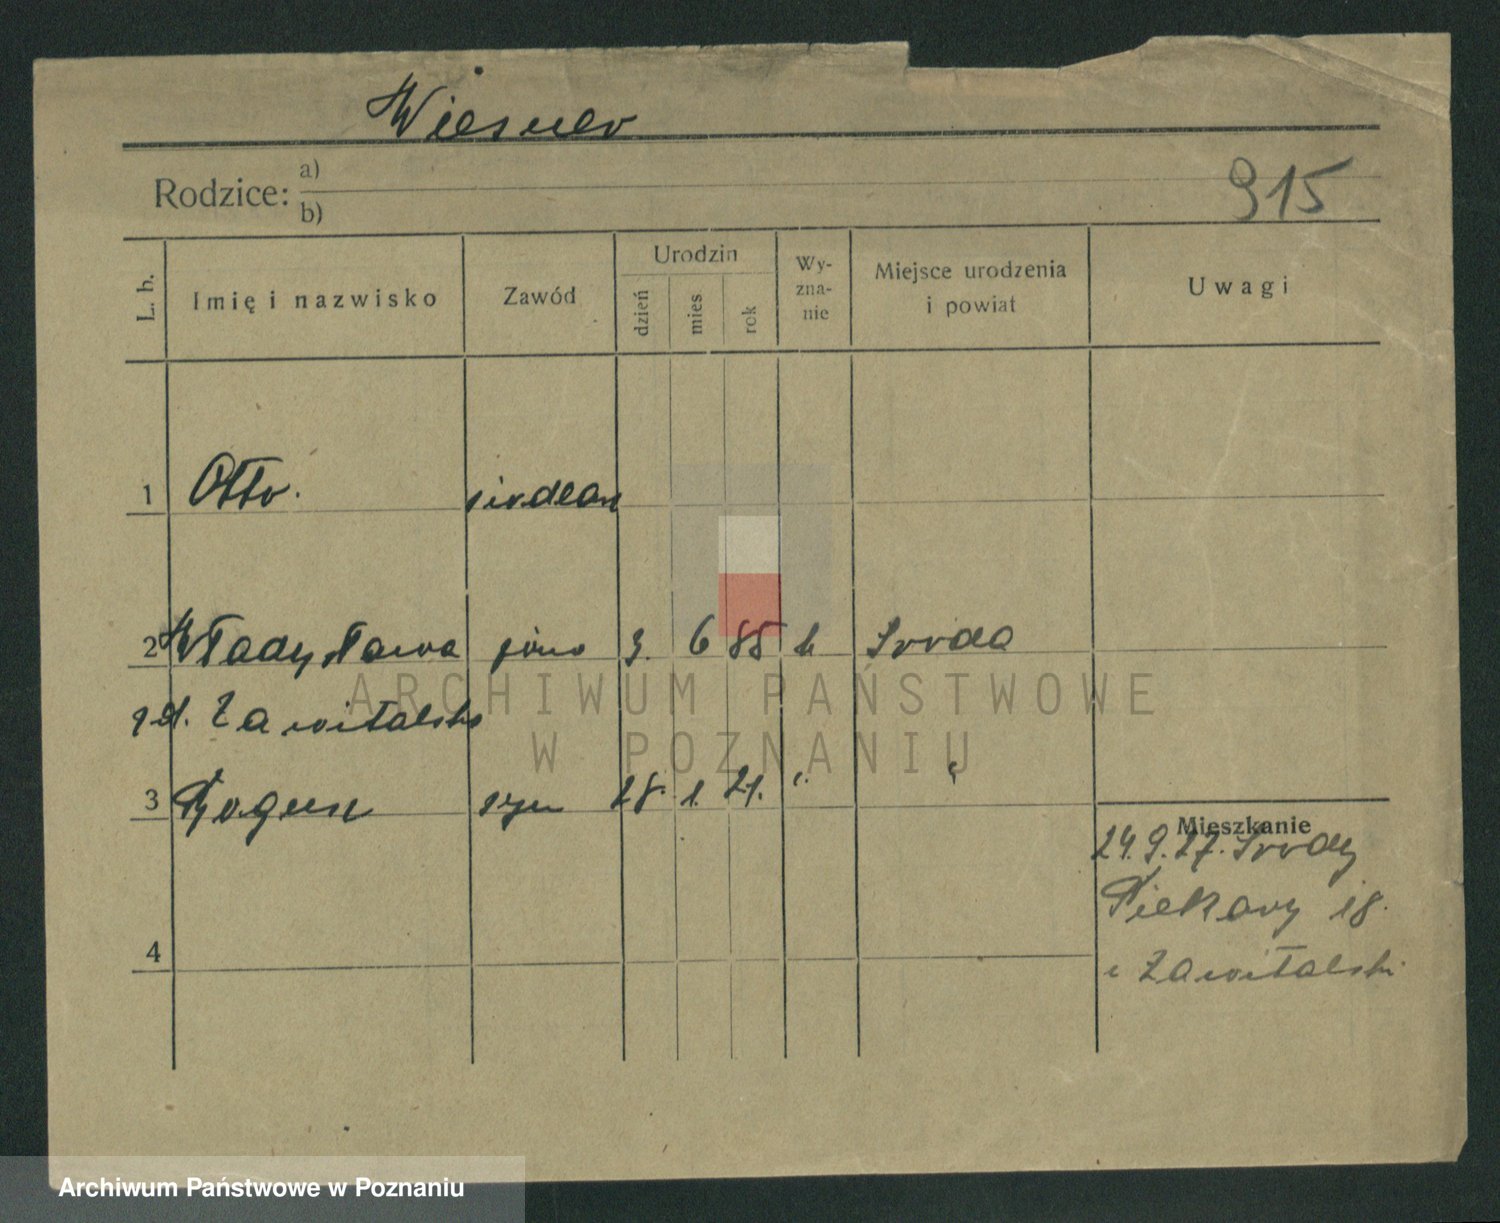 Wiesner
Rodzice: a)
b)
915
L. b. Imię i nazwisko Zawód Urodzin dzień mies rok Wy-zna-nie Miejsce urodzenia i powiat Uwagi
1 Otto.
2 Władysława żona 3. 6 85 k Środa
zd. Zawitalska
3 syn 28. 1. 21. " "
Mieszkanie
24. 9. 27. Środy
Piekary 18.
Zawitalski
4
ARCHIWUM PAŃSTWOWE
W POZNANIU
Archiwum Państwowe w Poznaniu